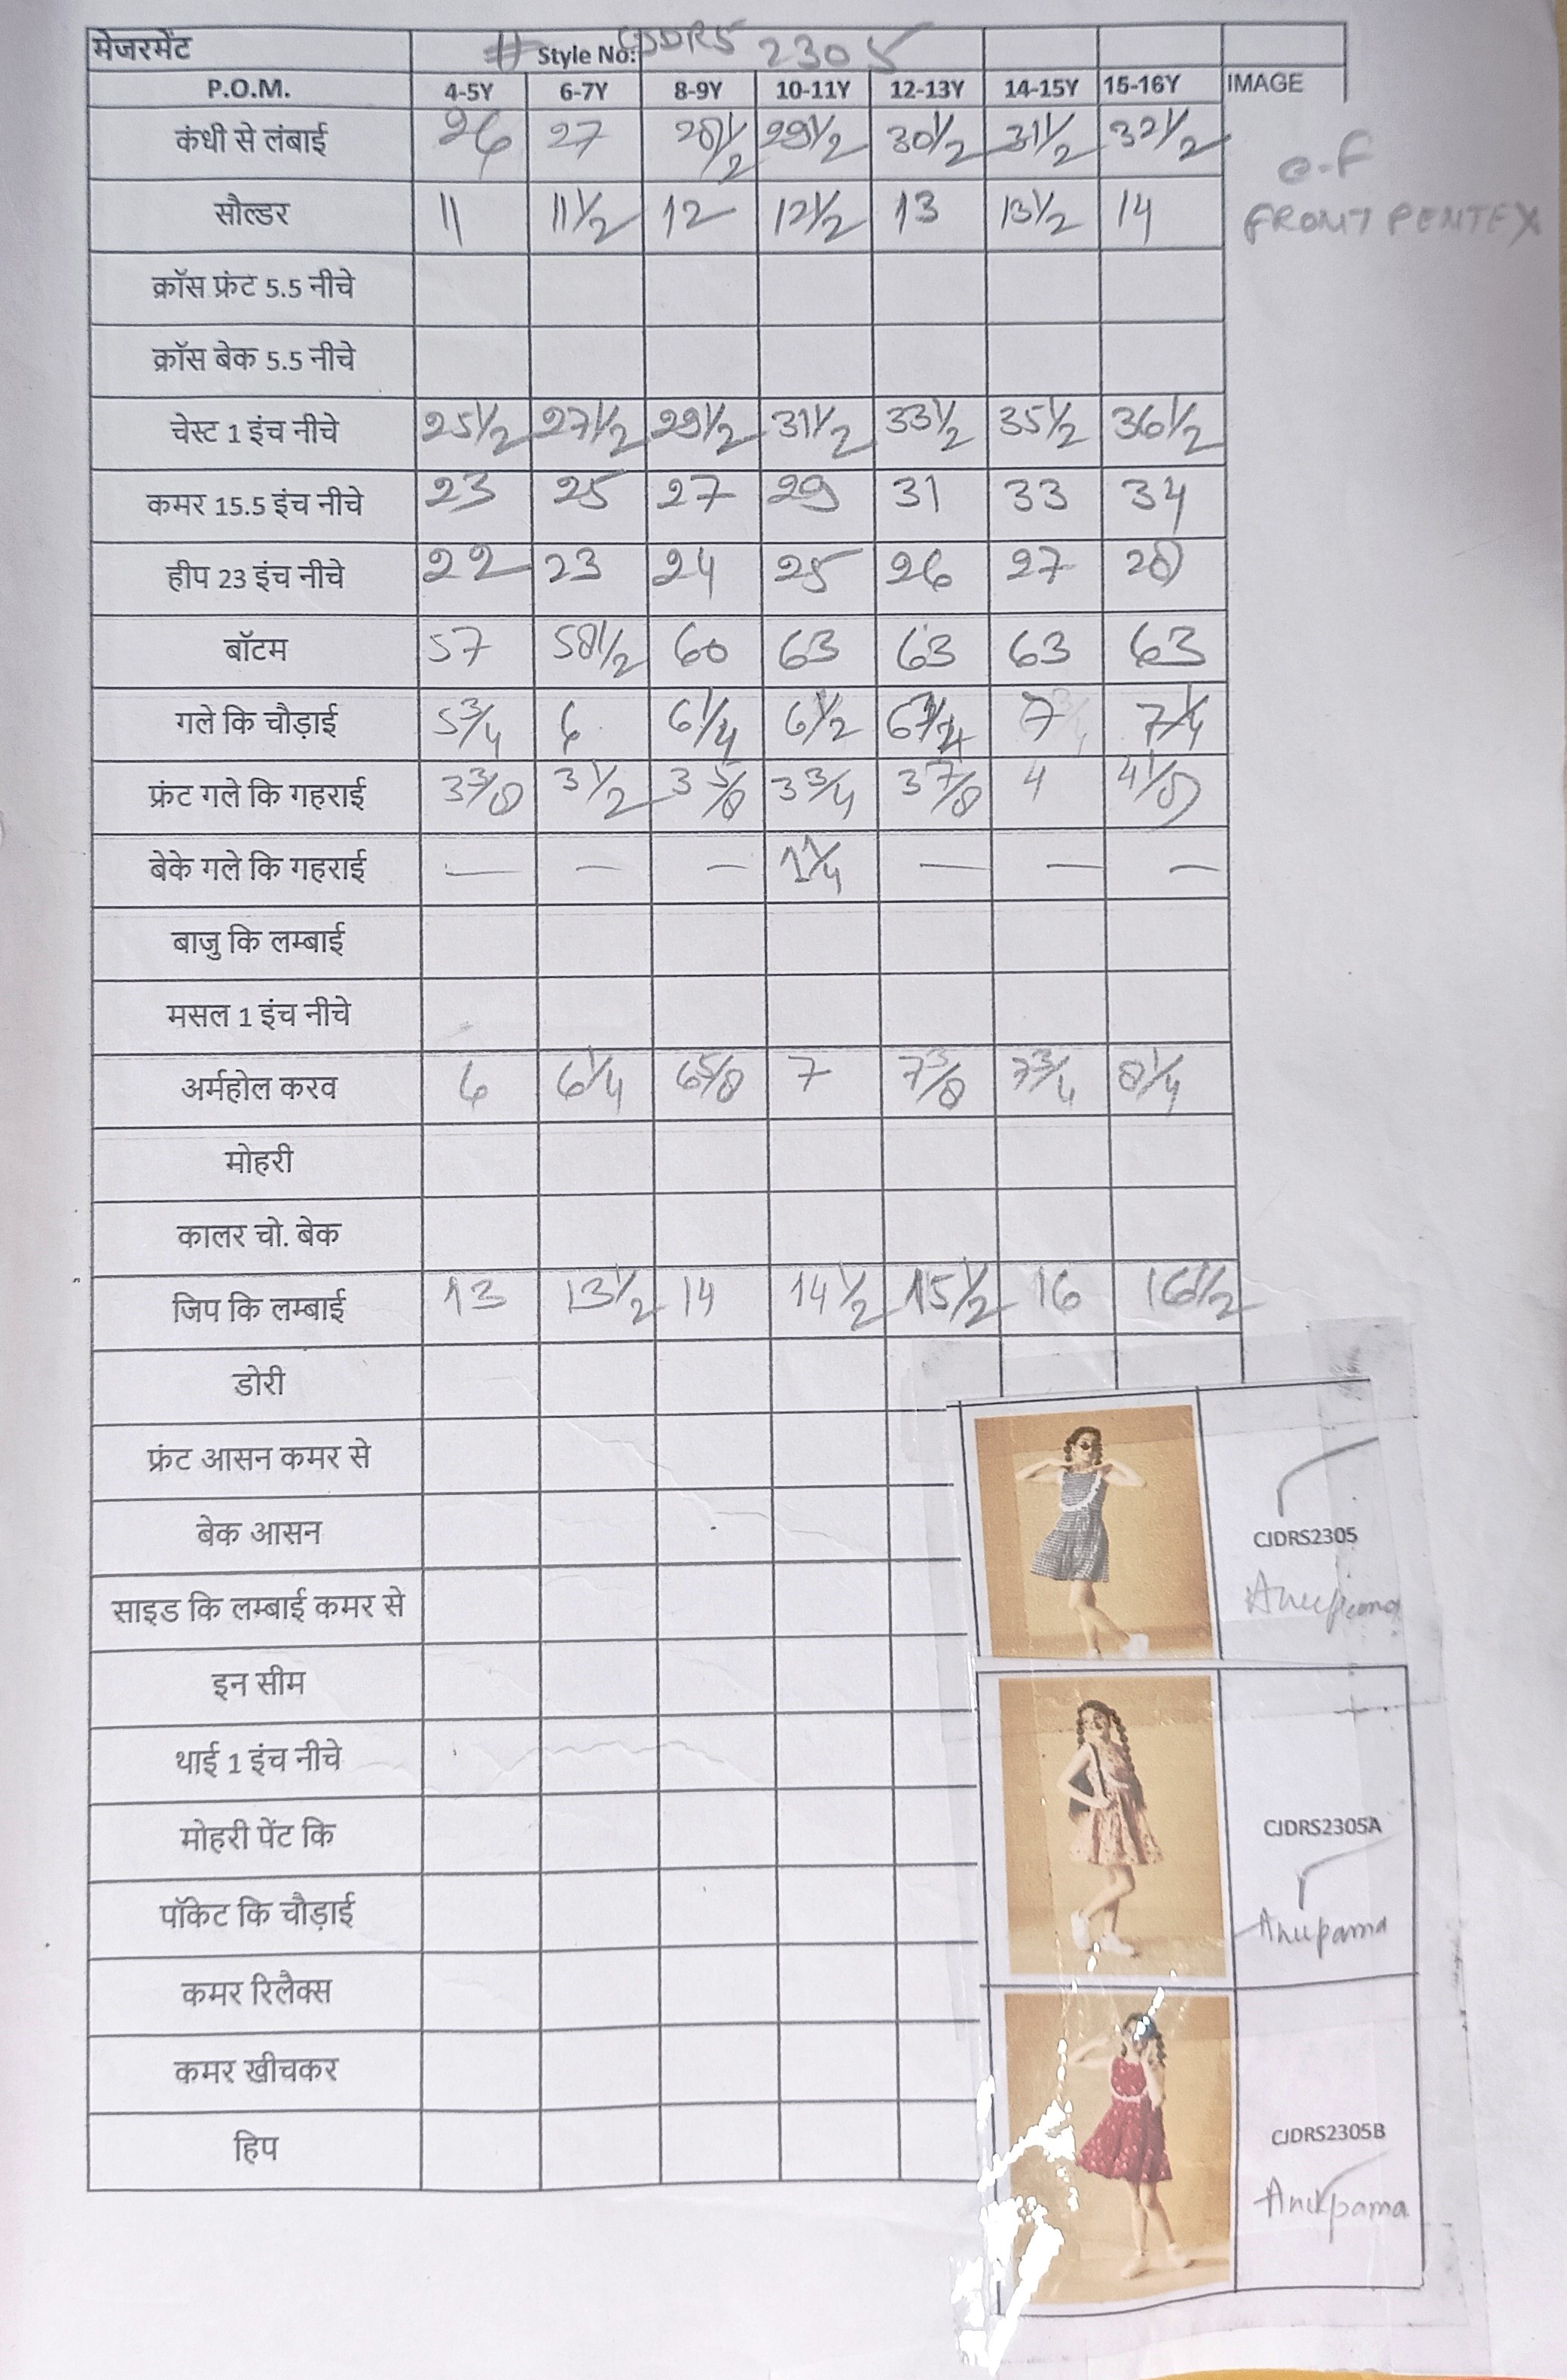 मेजरमेंट # Style No: CJDRS 2305
P.O.M. 4-5Y 6-7Y 8-9Y 10-11Y 12-13Y 14-15Y 15-16Y IMAGE
कंधी से लंबाई 26 27 28 1/2 29 1/2 30 1/2 31 1/2 32 1/2
सौल्डर 11 11 1/2 12 12 1/2 13 13 1/2 14
FRONT PENTEX
क्रॉस फ्रंट 5.5 नीचे
क्रॉस बेक 5.5 नीचे
चेस्ट 1 इंच नीचे 25 1/2 27 1/2 29 1/2 31 1/2 33 1/2 35 1/2 36 1/2
कमर 15.5 इंच नीचे 23 25 27 29 31 33 34
हीप 23 इंच नीचे 22 23 24 25 26 27 28
बॉटम 57 58 1/2 60 63 63 63 63
गले कि चौड़ाई 5 3/4 6 6 1/4 6 1/2 7 7 1/4
फ्रंट गले कि गहराई 3 3/8 3 1/2 3 5/8 3 3/4 3 7/8 4 4 1/8
बेके गले कि गहराई — — — 1 1/4 — — —
बाजु कि लम्बाई
मसल 1 इंच नीचे
अर्महोल करव 6 6 1/4 6 5/8 7 7 3/8 7 3/4 8 1/4
मोहरी
कालर चो. बेक
जिप कि लम्बाई 13 13 1/2 14 14 1/2 15 1/2 16 16 1/2
डोरी
फ्रंट आसन कमर से
बेक आसन
CJDRS2305
साइड कि लम्बाई कमर से
Anupama
इन सीम
थाई 1 इंच नीचे
मोहरी पेंट कि
CJDRS2305A
पॉकेट कि चौड़ाई
Anupama
कमर रिलैक्स
कमर खीचकर
हिप
CJDRS2305B
Anupama